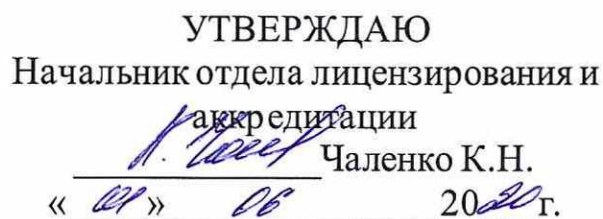 УТВЕРЖДАЮ
Начальник отдела лицензирования и
аккредитации
Чаленко К.Н.
« 01 » 06 2020 г.